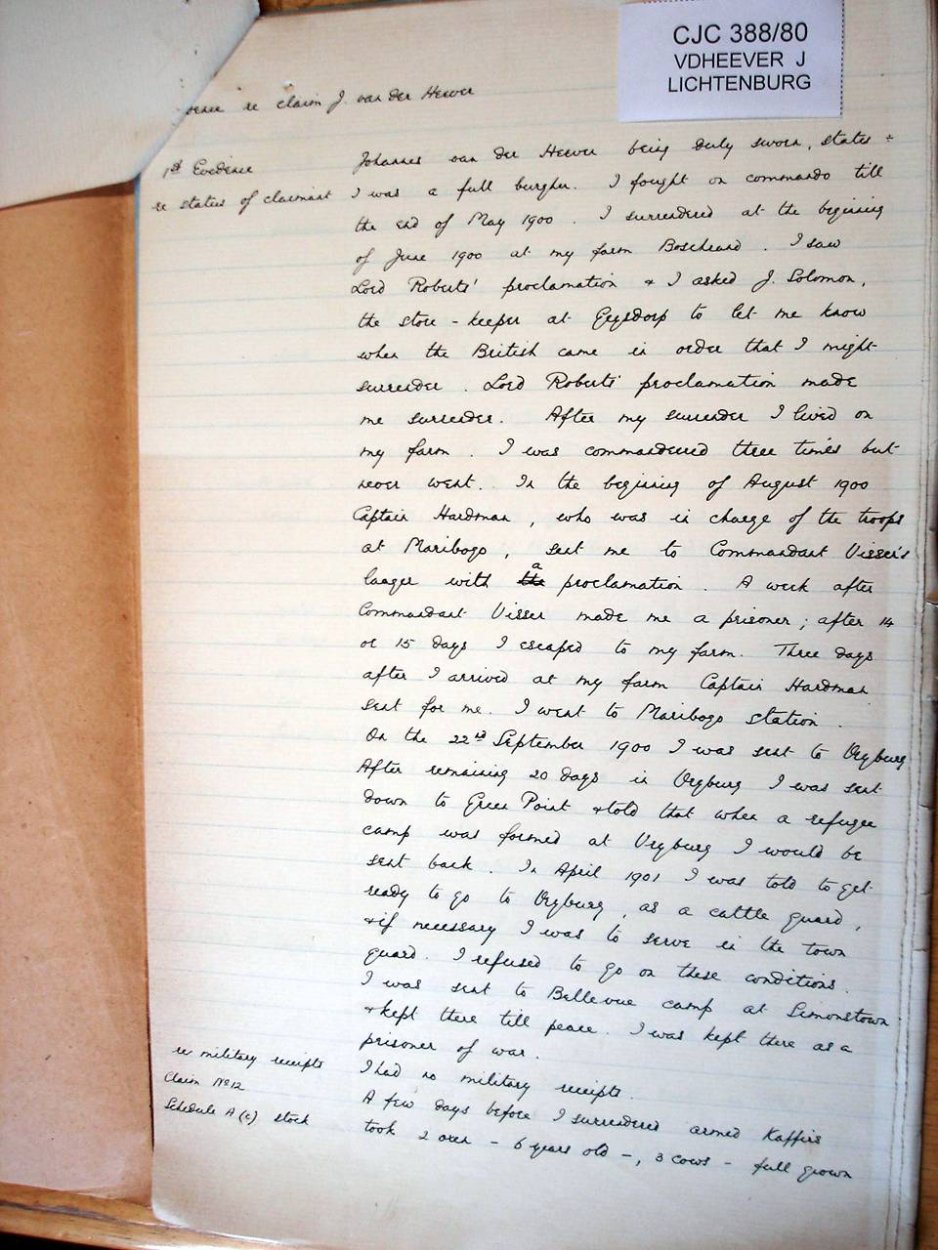 CJC 388/80
VDHEEVER J
LICHTENBURG
re claim J. van der Heever
1st Evidence
re status of claimant
Johannes van der Heever being duly sworn, states :
I was a full burgher. I fought on commando till
the end of May 1900. I surrendered at the begining
of June 1900 at my farm Boschrand. I saw
Lord Roberts' proclamation & I asked J. Solomon,
the store-keeper at Geysdorp to let me know
when the British came in order that I might
surrender. Lord Roberts' proclamation made
me surrender. After my surrender I lived on
my farm. I was commandeered three times but
never went. In the begining of August 1900
Captain Hardman, who was in charge of the troops
at Maribogo, sent me to Commandant Visser's
laager with the a proclamation. A week after
Commandant Visser made me a prisoner; after 14
or 15 days I escaped to my farm. Three days
after I arrived at my farm Captain Hardman
sent for me. I went to Maribogo station.
On the 22nd September 1900 I was sent to Vryburg
After remaining 20 days in Vryburg I was sent
down to Green Point & told that when a refugee
camp was formed at Vryburg I would be
sent back. In April 1901 I was told to get
ready to go to Vryburg, as a cattle guard,
& if necessary I was to serve in the town
guard. I refused to go on these conditions.
I was sent to Bellevue camp at Simonstown
& kept there till peace. I was kept there as a
prisoner of war.
re military receipts
I had no military receipts.
Claim No 12
Schedule A (c) stock
A few days before I surrendered armed Kaffirs
took 2 oxen - 6 years old -, 3 cows - full grown